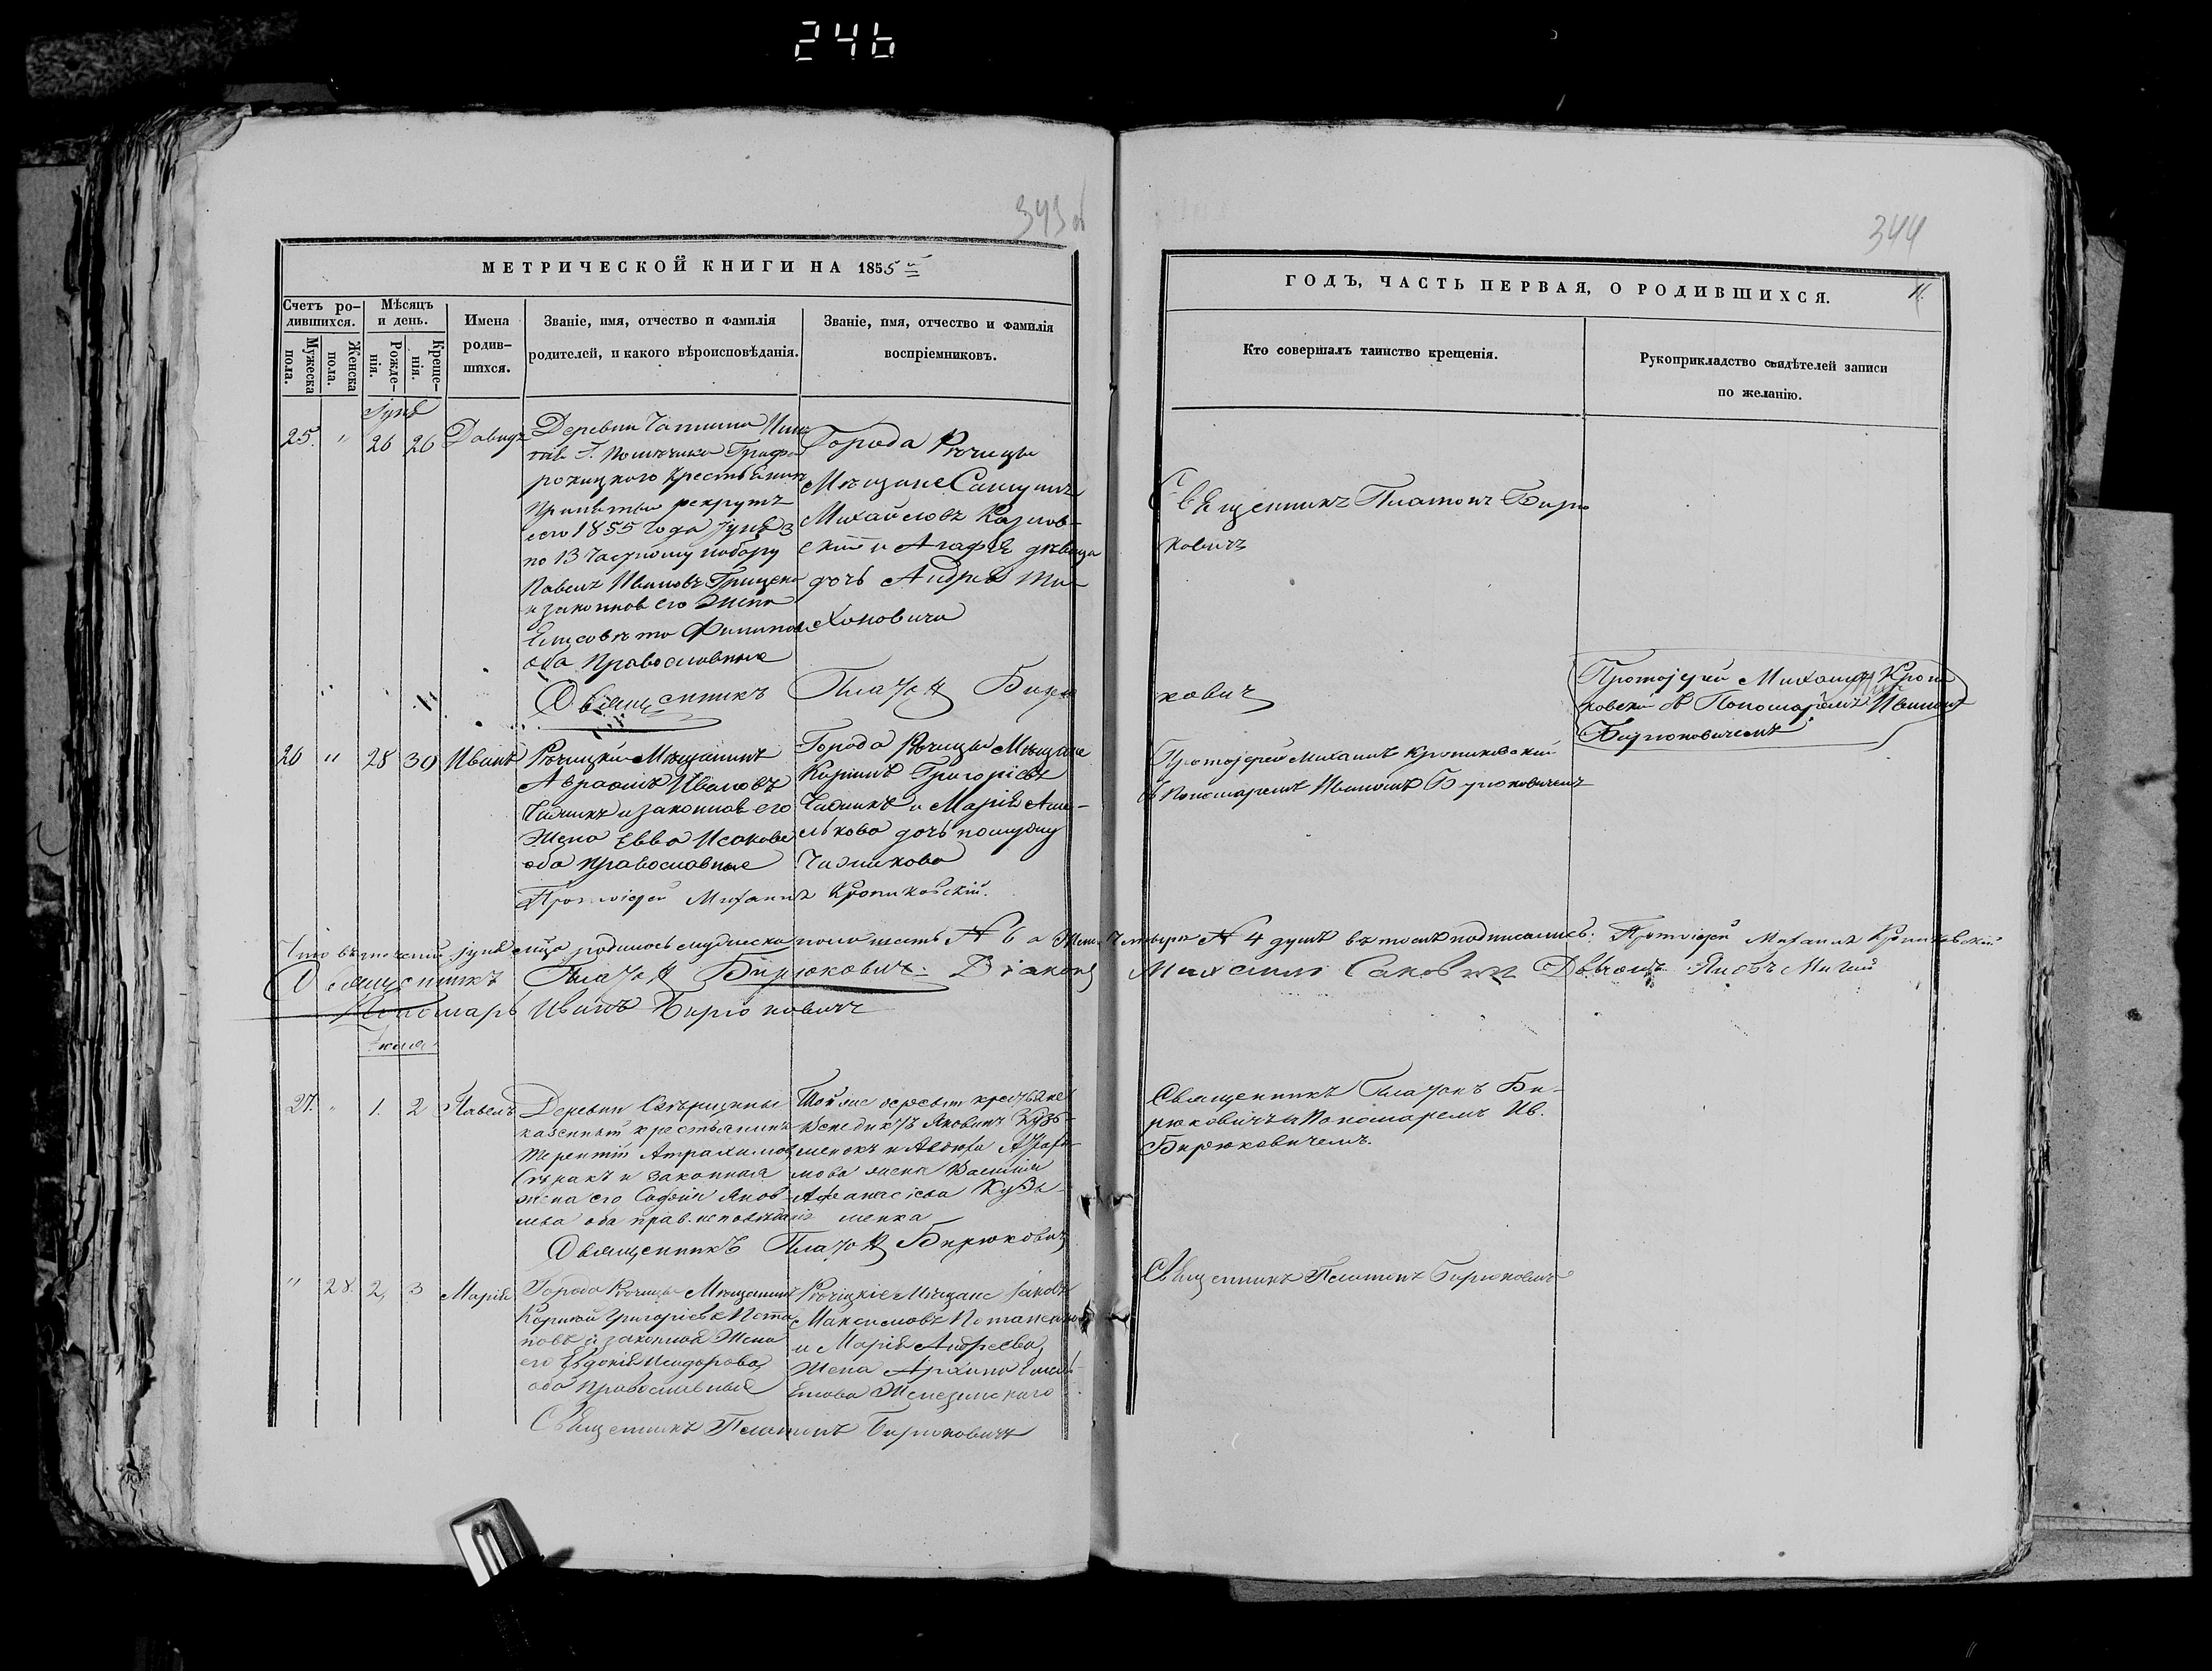 246
343 об
344
МЕТРИЧЕСКОЙ КНИГИ НА 1855 й
ГОДЪ, ЧАСТЬ ПЕРВАЯ, О РОДИВШИХСЯ.
11.
Счетъ ро-
дившихся.
Мужеска
пола.
Женска
пола.
Мѣсяцъ
и день.
Рожде-
нія.
Креще-
нія.
Имена
родив-
шихся.
Званіе, имя, отчество и фамилія
родителей, и какого вѣроисповѣданія.
Званіе, имя, отчество и фамилія
воспріемниковъ.
Кто совершалъ таинство крещенія.
Рукоприкладство свидѣтелей записи
по желанію.
Јунѣ
25. " 26 26 Давидъ
Деревни
Г. Помѣщика Графа
крестьянинъ
Принятый рекрутъ
сего 1855 Года Јунѣ 3
по 13 Частному набору
Павелъ Ивановъ Гриценк
и законнов его Жена
Елисовѣта Филипова
оба Православные
Города Рѣчицы
Мѣщане Самуилъ
Михайловъ Казлов-
скій и Агафія дѣвица
дочь Андрея Ти-
хоновича
Свѣщенникъ Платонъ Бирю
ковичъ
Священникъ Платон Бирю
кович
Протојерей Михаилъ Кропи
ковскій съ Пономаремъ Иваномъ
Бирюковичемъ
26 " 28 30 Иванъ
Рѣчицкій Мѣщанинъ
Авраамъ Ивановъ
Чижикъ и законнов его
Жена Евва Исакова
оба православные
Города Рѣчицы Мѣщане
Корнилъ Григорьевъ
Чижикъ и Марія Аме-
лькова дочь
Чижикова
Протојерей Михаилъ Кропиковскій
съ Пономаремъ Иваномъ Бирюковичемъ
Протоіерей Михаилъ Кропиковскій.
Что въ теченіи јунѣ мѣсяца родилось мужеска пола шесть № 6 а Женс. Четыре № 4 душъ въ томъ подписались: Протоіерей Михаилъ Кропиковскій
Священникъ Платон Бирюкович. Діаконъ Михаилъ Саковичъ Дьячокъ Яковъ
Пономарь Иванъ Бирюковичъ
Іюля
27. " 1. 2 Павелъ
Деревни
казенный крестьянинъ
Терентій
и законная
жена его Софія Яков-
лева оба прав. исповѣданія
Той же деревни крестьяне
Венедиктъ Яковичъ Кузь-
менокъ и Авдюха
мова жена Василія
Афанасіева Кузь-
менка
Священникъ Платонъ Би-
рюковичъ и Пономаремъ Ив.
Бирюковичемъ.
Священникъ Платон Бирюкович
" 28. 2, 3 Марія
Города Рѣчицы Мѣщанинъ
Корнѣй Григорьевъ Пота
повъ и законная Жена
его Евдокія Исидорова
оба Православные
Рѣчицкіе Мѣщане Јаковъ
Максимовъ Потапенко
и Марія Андреева
Жена Архипа Емель-
Свѣщенникъ Платонъ Бирюковичъ
Свѣщенникъ Платонъ Бирюковичъ